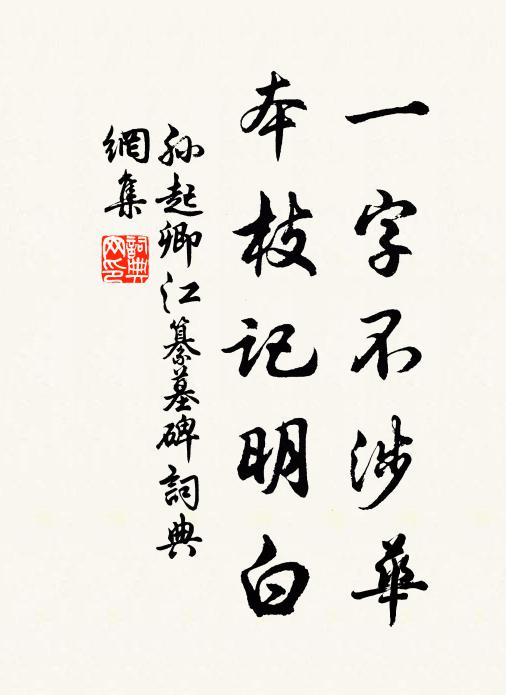 一字不涉華
本枝記明白
孫起卿江纂墓碑詞典
網集
詞典
网印